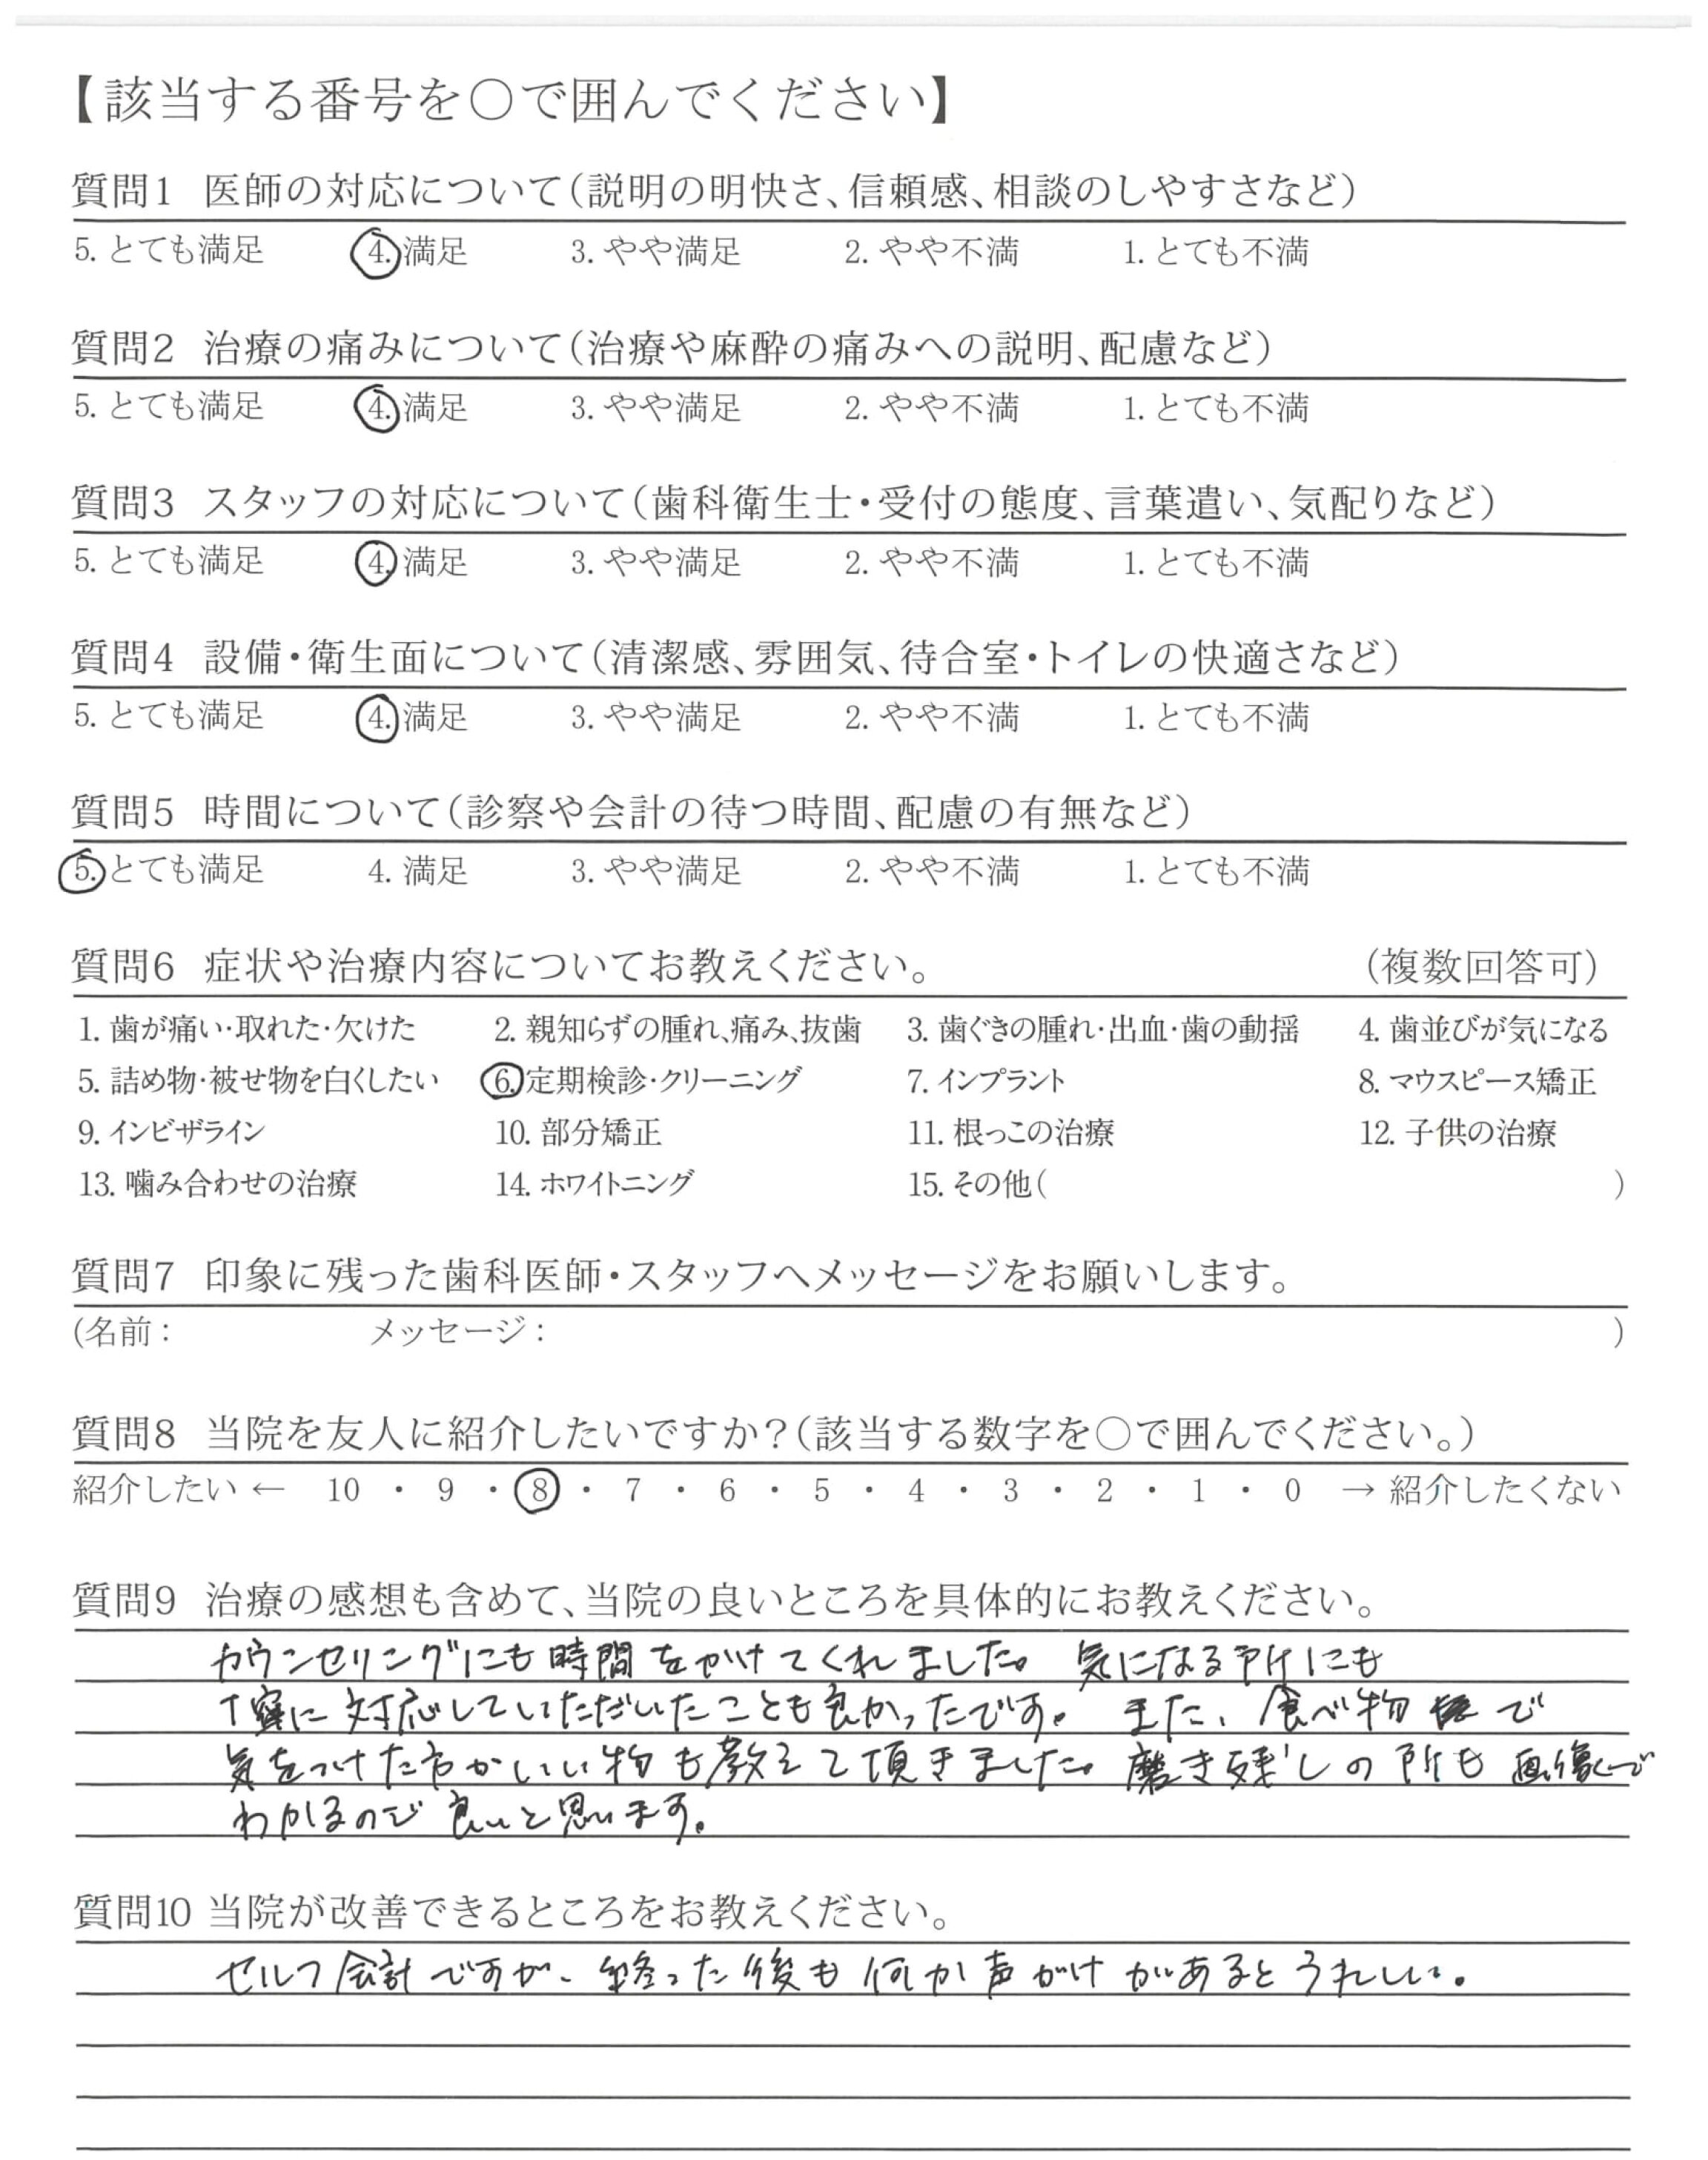 【該当する番号を○で囲んでください】
質問1 医師の対応について（説明の明快さ、信頼感、相談のしやすさなど）
5. とても満足 4. 満足 3. やや満足 2. やや不満 1. とても不満
質問2 治療の痛みについて（治療や麻酔の痛みへの説明、配慮など）
5. とても満足 4. 満足 3. やや満足 2. やや不満 1. とても不満
質問3 スタッフの対応について（歯科衛生士・受付の態度、言葉遣い、気配りなど）
5. とても満足 4. 満足 3. やや満足 2. やや不満 1. とても不満
質問4 設備・衛生面について（清潔感、雰囲気、待合室・トイレの快適さなど）
5. とても満足 4. 満足 3. やや満足 2. やや不満 1. とても不満
質問5 時間について（診察や会計の待つ時間、配慮の有無など）
5. とても満足 4. 満足 3. やや満足 2. やや不満 1. とても不満
質問6 症状や治療内容についてお教えください。 （複数回答可）
1. 歯が痛い・取れた・欠けた 2. 親知らずの腫れ、痛み、抜歯 3. 歯ぐきの腫れ・出血・歯の動揺 4. 歯並びが気になる
5. 詰め物・被せ物を白くしたい 6. 定期検診・クリーニング 7. インプラント 8. マウスピース矯正
9. インビザライン 10. 部分矯正 11. 根っこの治療 12. 子供の治療
13. 噛み合わせの治療 14. ホワイトニング 15. その他（ ）
質問7 印象に残った歯科医師・スタッフへメッセージをお願いします。
（名前： メッセージ： ）
質問8 当院を友人に紹介したいですか？（該当する数字を○で囲んでください。）
紹介したい ← 10 ・ 9 ・ 8 ・ 7 ・ 6 ・ 5 ・ 4 ・ 3 ・ 2 ・ 1 ・ 0 → 紹介したくない
質問9 治療の感想も含めて、当院の良いところを具体的にお教えください。
カウンセリングにも時間をかけてくれました。気になる所にも
丁寧に対応していただいたことも良かったです。また、食べ物で
気をつけた方がいい物も教えて頂きました。磨き残しの所も画像で
わかるので良いと思います。
質問10 当院が改善できるところをお教えください。
セルフ会計ですが、終った後も何か声がけがあるとうれしい。